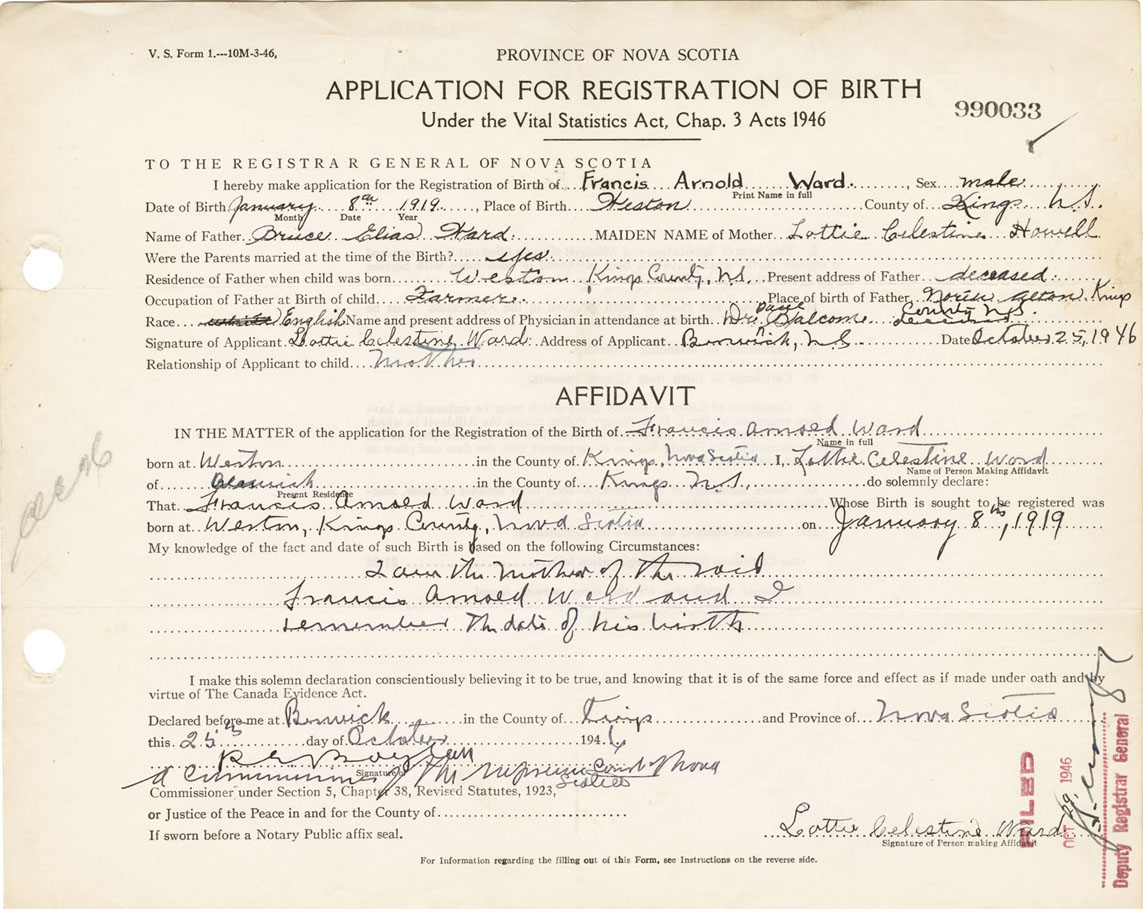 V. S. Form 1.---10M-3-46,
PROVINCE OF NOVA SCOTIA
APPLICATION FOR REGISTRATION OF BIRTH
990033
Under the Vital Statistics Act, Chap. 3 Acts 1946
TO THE REGISTRAR GENERAL OF NOVA SCOTIA
I hereby make application for the Registration of Birth of Francis Arnold Ward, Sex male
Print Name in full
Date of Birth January 8th 1919, Place of Birth Weston County of Kings N.S.
Month Date Year
Name of Father Bruce Elias Ward MAIDEN NAME of Mother Lottie Celestine Howell
Were the Parents married at the time of the Birth? yes
Residence of Father when child was born Weston Kings County, N.S. Present address of Father deceased
Occupation of Father at Birth of child Farmer Place of birth of Father North Alton, Kings County N.S.
Race English Name and present address of Physician in attendance at birth Dr. Balcome
Signature of Applicant Lottie Celestine Ward Address of Applicant Berwick, N.S. Date October 25, 1946
Relationship of Applicant to child Mother
AFFIDAVIT
IN THE MATTER of the application for the Registration of the Birth of Francis Arnold Ward
Name in full
born at Weston in the County of Kings, Nova Scotia I, Lottie Celestine Ward
Name of Person Making Affidavit
of Berwick in the County of Kings N.S. do solemnly declare:
Present Residence
That Francis Arnold Ward Whose Birth is sought to be registered was
born at Weston, Kings County, Nova Scotia on January 8th, 1919
My knowledge of the fact and date of such Birth is based on the following Circumstances:
I am the mother of the said
Francis Arnold Ward and I
remember the date of his birth
I make this solemn declaration conscientiously believing it to be true, and knowing that it is of the same force and effect as if made under oath and by
virtue of The Canada Evidence Act.
Declared before me at Berwick in the County of Kings and Province of Nova Scotia
this 25th day of October 1946
Signature of
A Commissioner of the Supreme Court of Nova Scotia
Commissioner under Section 5, Chapter 38, Revised Statutes, 1923,
or Justice of the Peace in and for the County of
If sworn before a Notary Public affix seal.
Lottie Celestine Ward
Signature of Person making Affidavit
FILED
OCT 29 1946
Deputy Registrar General
For Information regarding the filling out of this Form, see Instructions on the reverse side.